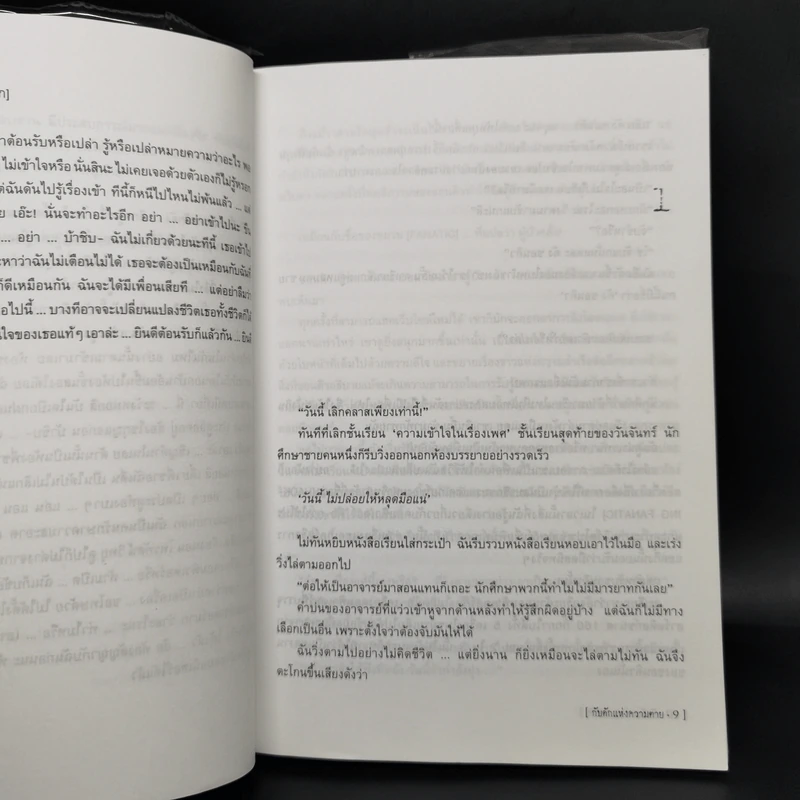 ก]
าต้อนรับหรือเปล่า รู้หรือเปล่าหมายความว่าอะไร
ไม่เข้าใจหรือ นั่นสินะ ไม่เคยเจอด้วยตัวเองก็ไม่รู้หรอก
ต่ฉันดันไปรู้เรื่องเข้า ทีนี้ก็หนีไปไหนไม่พ้นแล้ว ...
ย เอ๊ะ! นั่นจะทำอะไรอีก อย่า ... อย่าเข้าไปนะ
... อย่า ... บ้าชิบ- ฉันไม่เกี่ยวด้วยนะทีนี้ เธอเข้าไป
ะหาว่าฉันไม่เตือนไม่ได้ เธอจะต้องเป็นเหมือนกับฉันที่
ก็ดีเหมือนกัน ฉันจะได้มีเพื่อนเสียที ... แต่อย่าลืมว่า
อไปนี้ ... บางทีอาจจะเปลี่ยนแปลงชีวิตเธอทั้งชีวิตก็ได้
นใจของเธอแท้ๆ เอาล่ะ ... ยินดีต้อนรับก็แล้วกัน ...
1
“วันนี้ เลิกคลาสเพียงเท่านี้!”
ทันทีที่เลิกชั้นเรียน ‘ความเข้าใจในเรื่องเพศ’ ชั้นเรียนสุดท้ายของวันจันทร์ นัก
ศึกษาชายคนหนึ่งก็รีบวิ่งออกนอกห้องบรรยายอย่างรวดเร็ว
‘วันนี้ ไม่ปล่อยให้หลุดมือแน่’
ไม่ทันหยิบหนังสือเรียนใส่กระเป๋า ฉันรีบรวบหนังสือเรียนหอบเอาไว้ในมือ และเร่ง
วิ่งไล่ตามออกไป
“ต่อให้เป็นอาจารย์มาสอนแทนก็เถอะ นักศึกษาพวกนี้ทำไมไม่มีมารยาทกันเลย”
คำบ่นของอาจารย์ที่แว่วเข้าหูจากด้านหลังทำให้รู้สึกผิดอยู่บ้าง แต่ฉันก็ไม่มีทาง
เลือกเป็นอื่น เพราะตั้งใจว่าต้องจับมันให้ได้
ฉันวิ่งตามไปอย่างไม่คิดชีวิต ... แต่ยิ่งนาน ก็ยิ่งเหมือนจะไล่ตามไม่ทัน ฉันจึง
ตะโกนขึ้นเสียงดังว่า
[ กับดักแห่งความตาย • 9 ]